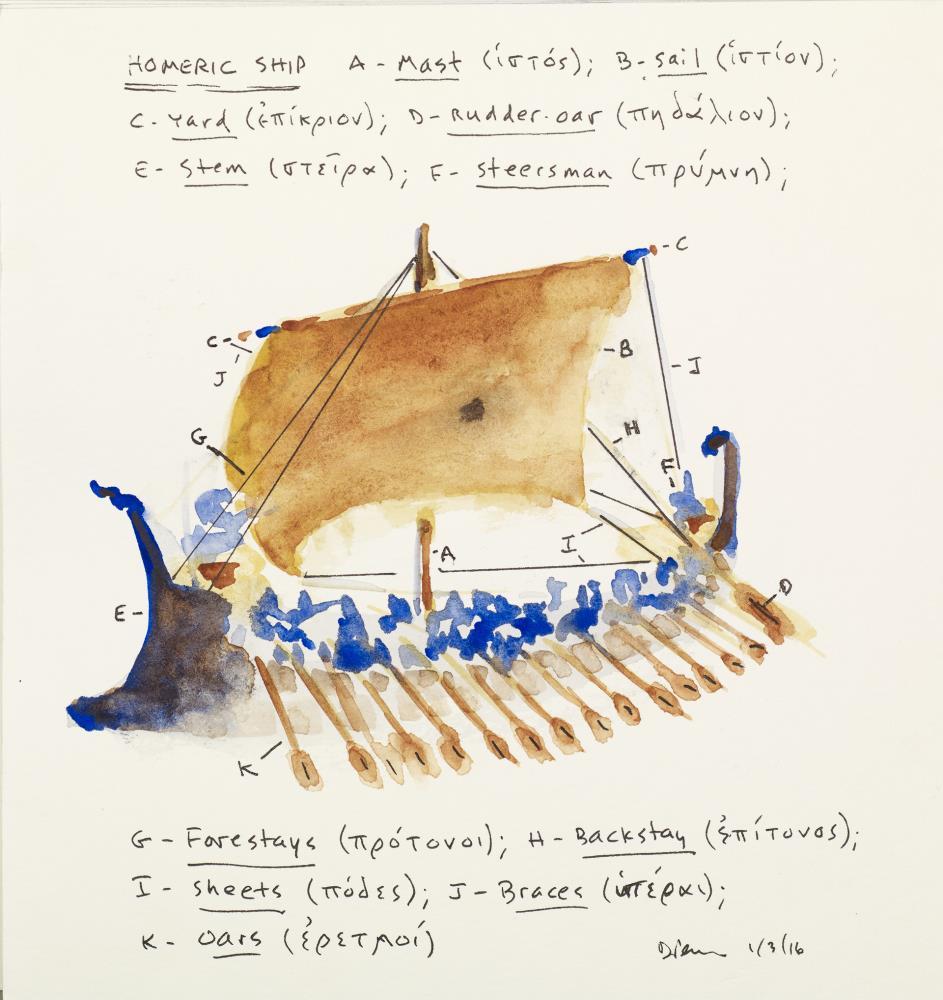 HOMERIC SHIP A - Mast (ἱστός); B - Sail (ἱστίον);
C - Yard (ἐπίκριον); D - Rudder-oar (πηδάλιον);
E - Stem (στεῖρα); F - Steersman (πρύμνη);
- C
C -
J
- B
- J
G
- H
F -
I
- A
E -
D
K
G - Forestays (πρότονοι); H - Backstay (ἐπίτονος);
I - Sheets (πόδες); J - Braces (ὑπέραι);
K - Oars (ἐρετμοί)
1/3/16